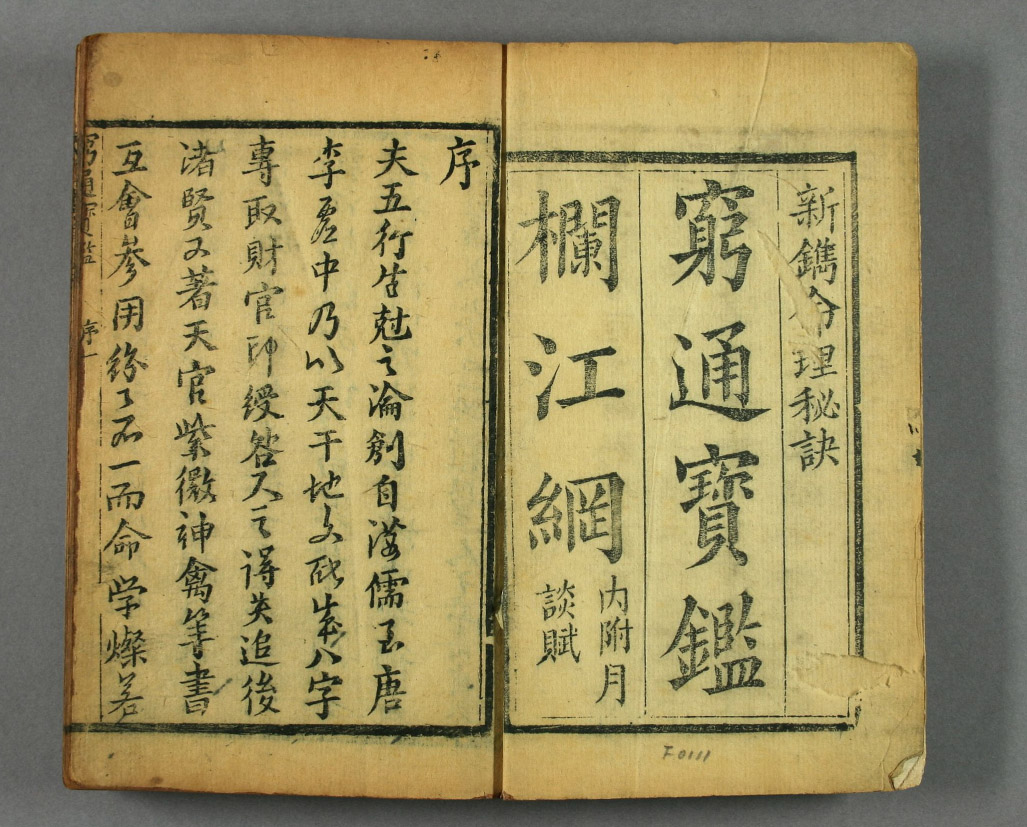 新鐫命理秘訣
窮通寶鑑
欄江網
內附月
談賦
F0111
序
夫五行生尅之淪創自漢儒至唐
李虛中乃以天干地支配成八字
專取財官印綬咎人之得失追後
渚賢又著天官紫微神禽等書
互會參用紛々不一而命学燦若
窮通寶鑑
序一